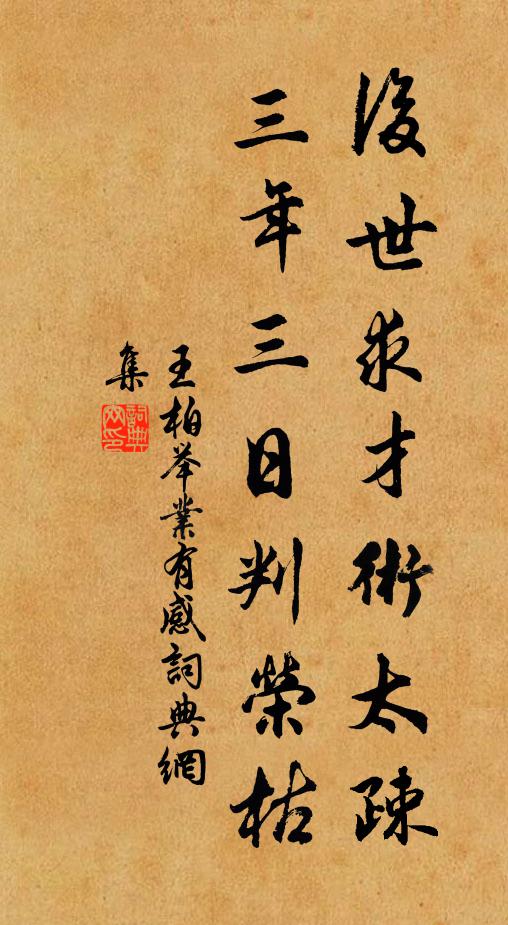 後世求才術太疎
三年三日判榮枯
王柏举業有感詞典網
集
詞典
网印